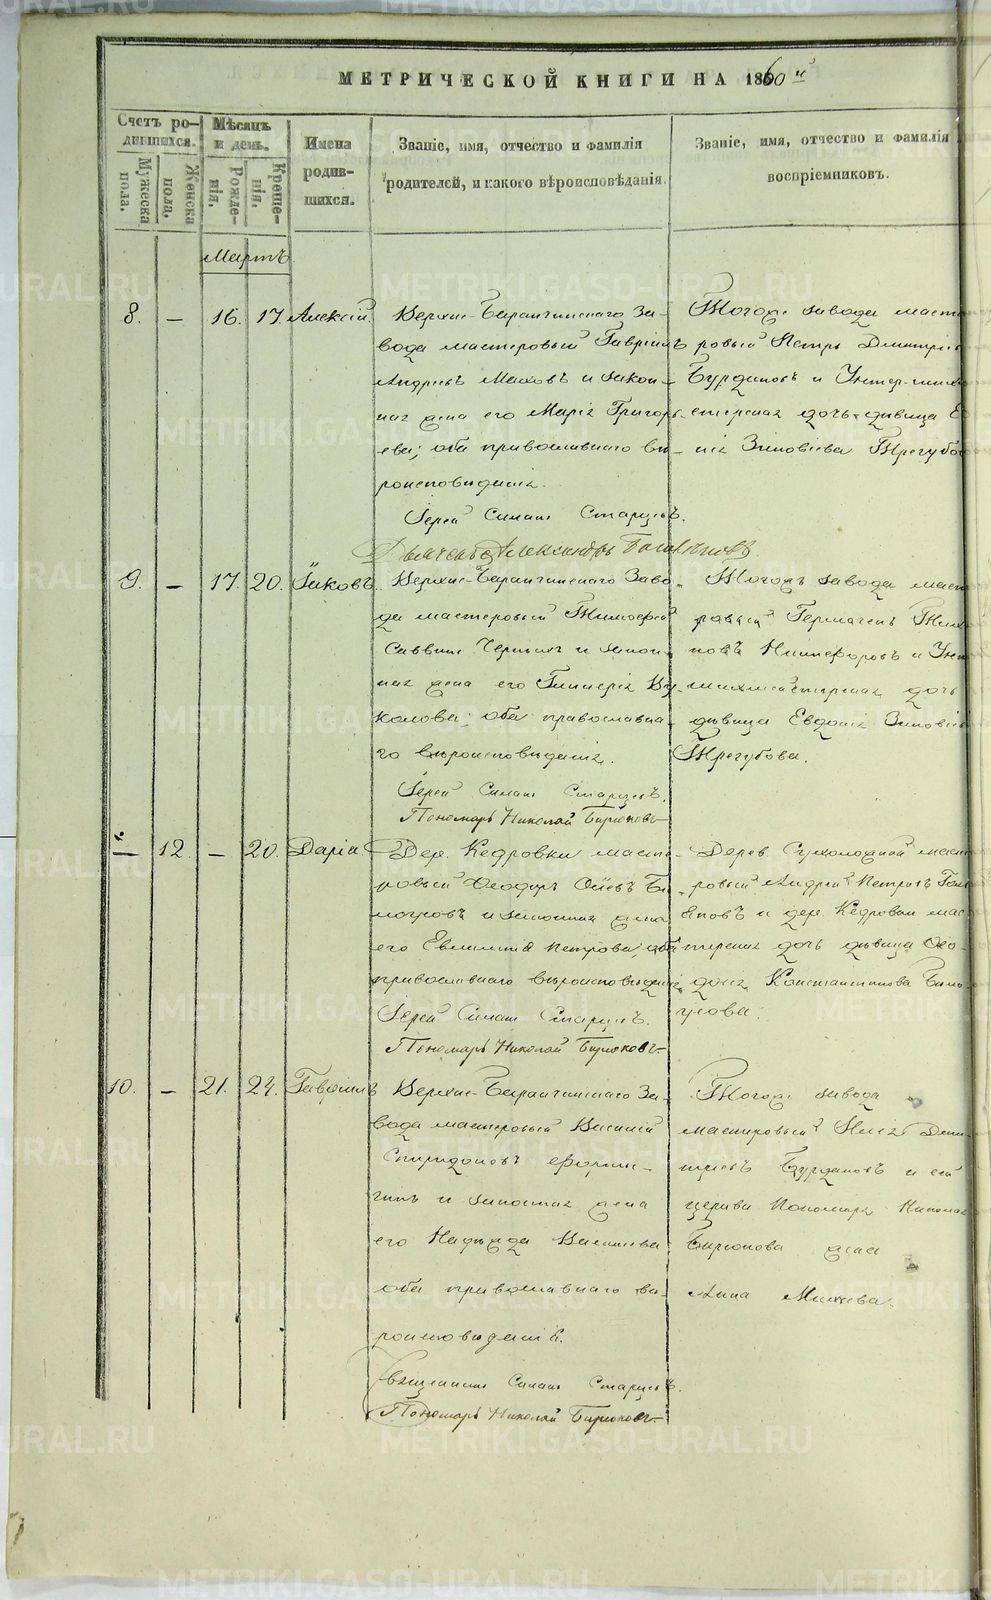 МЕТРИЧЕСКОЙ КНИГИ НА 1860й
Счетъ ро-
дившихся.
Мѣсяцъ
и день.
Имена
родив-
шихся.
Званіе, имя, отчество и фамилія
родителей, и какого вѣроисповѣданія.
Званіе, имя, отчество и фамилія
воспріемниковъ.
Мужеска
пола.
Женска
пола.
Рожде-
нія.
Креще-
нія.
Мартъ
8. — 16. 17. Алексій.
Верхне-Баранчинскаго За-
вода мастеровый Гавріилъ
Андреевъ Маховъ и закон-
ная жена его Марія Григорь-
ева; оба православнаго вѣ-
роисповѣданія.
Іерей Симонъ Старцевъ.
Дьячекъ Александръ
Тогожъ завода масте
ровый Петръ Дмитріевъ
Бурдаковъ и Унтер-шихт-
мейстерская дочь дѣвица
Зиновіева Трегубова
9. — 17. 20. Іаковъ.
Верхне-Баранчинскаго Заво-
да мастеровый Тимофей
Саввинъ Черныхъ и закон-
ная жена его Гликерія Ву-
колова; оба православна-
го вѣроисповѣданія.
Іерей Симонъ Старцевъ.
Пономарь Николай Бирюковъ
Тогожъ завода масте
ровый Германъ
Никифоровъ и Ун
шихтмейстерская дочь
дѣвица Евдокія Зиновіев
Трегубова.
— 12. — 20. Дарія
Дер. Кедровки масте-
ровый Ѳеодоръ
и законная жена
его Евлампія Петрова; оба
православнаго вѣроисповѣданія
Іерей Симонъ Старцевъ.
Пономарь Николай Бирюковъ
Дерев. Сухоложной масте
ровый Андрей Петровъ
и дер. Кедровки мас
терская дочь дѣвица Ѳео-
досія Константинова
10. — 21. 24. Гавріилъ
Верхне-Баранчинскаго За-
вода мастеровый Василій
Спиридоновъ
и законная жена
его Надежда Васильева
оба православнаго вѣ-
роисповѣданія.
Священникъ Симонъ Старцевъ.
Пономарь Николай Бирюковъ
Тогожъ завода
мастеровый Илія Дми-
тріевъ Бурдаковъ и сей
церкви Пономаря Николая
Бирюкова жена
Анна
METRIKI.GASO-URAL.RU